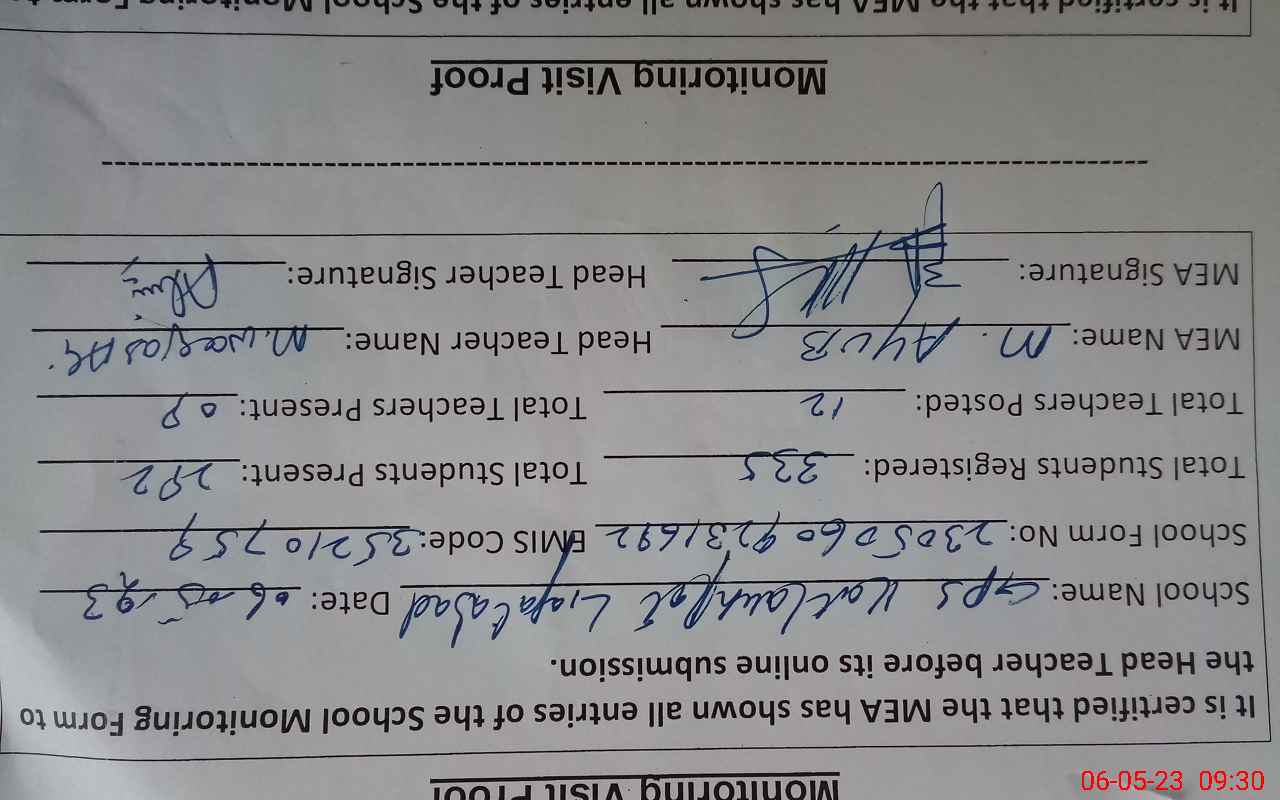 Monitoring Visit Proof
It is certified that the MEA has shown all entries of the School Monitoring Form to
the Head Teacher before its online submission.
School Name: GPS Liaqatabad Date: 06-05-23
School Form No: 23050609231692 EMIS Code: 35210759
Total Students Registered: 335 Total Students Present: 292
Total Teachers Posted: 12 Total Teachers Present: 09
MEA Name: M. AYUB Head Teacher Name: M. Waqas Ali
MEA Signature: Head Teacher Signature:
Monitoring Visit Proof
It is certified that the MEA has shown all entries of the School Monitoring Form to
06-05-23 09:30